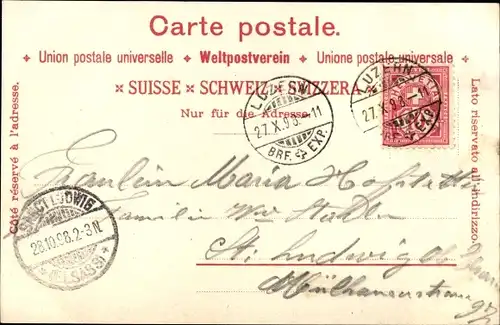 Carte postale.
+ Union postale universelle + Weltpostverein + Unione postale universale +
+ SUISSE + SCHWEIZ + SVIZZERA +
Nur für die Adresse.
Côté réservé à l'adresse.
Lato riservato all'indirizzo.
LUZERN
27.X.98.-11
BRF. EXP.
LUZERN
27.X.98.-11
EXP.
ST LUDWIG
28.10.98.2-3N.
* (ELSASS) *
Fräulein Maria
Familien
St. Ludwig
Mülhauserstrasse
97